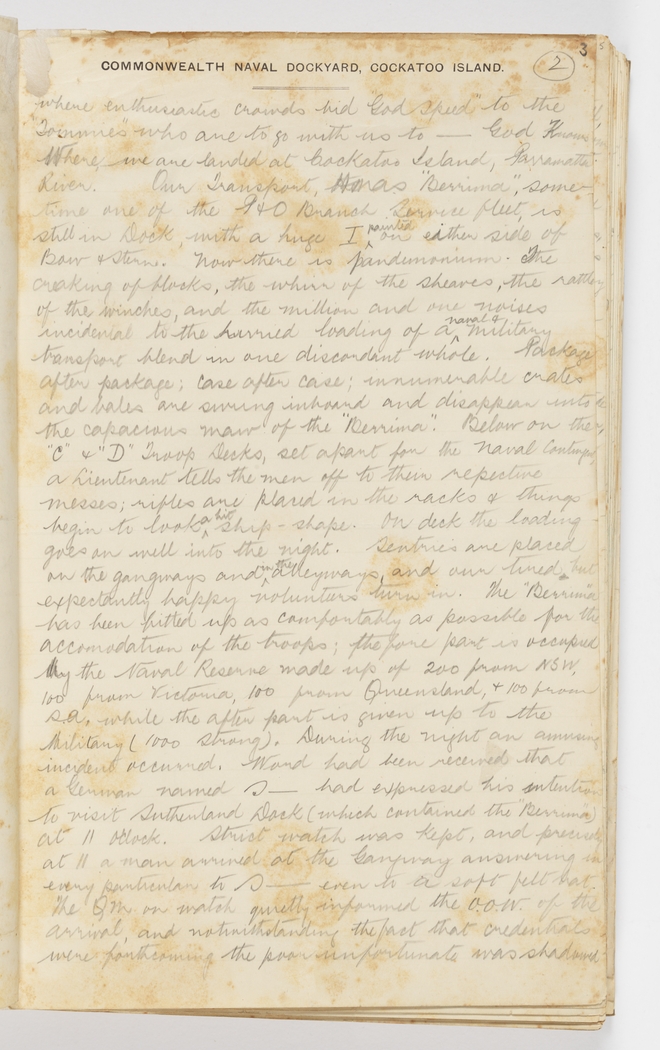 3
2
COMMONWEALTH NAVAL DOCKYARD, COCKATOO ISLAND.
where enthusiastic crowds bid "God speed" to the
"Tommies" who are to go with us to — God Knows
Where we are landed at Cockatoo Island, Parramatta
River. Our Transport, Hmas "Berrima", some-
time one of the P&O Branch Service fleet, is
still in Dock, with a huge I painted on either side of
Bow & Stern. Now there is pandemonium. The
creaking of blocks, the whirr of the sheaves, the rattle
of the winches, and the million and one noises
incidental to the hurried loading of a naval & military
transport blend in one discordant whole. Package
after package; case after case; innumerable crates
and bales are swung inboard and disappear into
the capacious maw of the "Berrima". Below on the
"C" & "D" Troop Decks, set apart for the Naval Contingent,
a Lieutenant tells the men off to their repective
messes; rifles are placed in the racks & things
begin to look a bit ship-shape. On deck the loading
goes on well into the night. Sentries are placed
on the gangways and in the alleyways, and our tired, but
expectantly happy volunteers turn in. The "Berrima"
has been fitted up as comfortably as possible for the
accomodation of the troops; the fore part is occupied
by the Naval Reserve made up of 200 from NSW,
100 from Victoria, 100 from Queensland, & 100 from
S.A. while the after part is given up to the
Military (1000 strong). During the night an amusing
incident occurred. Word had been received that
a German named S— had expressed his intention
to visit Sutherland Dock (which contained the "Berrima")
at 11 o'clock. Strict watch was kept, and precisely
at 11 a man arrived at the Gangway answering in
every particular to S— even to a soft felt hat.
The Q.M. on watch quietly informed the O.O.W. of the
arrival, and notwithstanding the fact that credentials
were forthcoming the poor unfortunate was shadowed